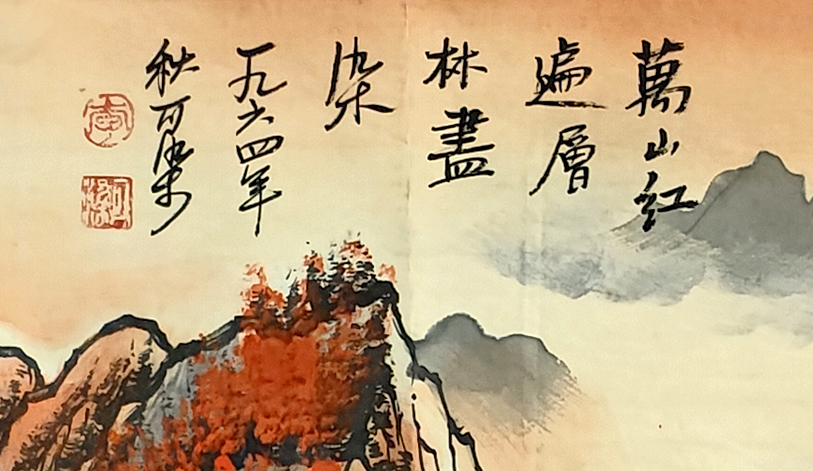 萬山紅
遍層
林盡
染
一九六四年
秋可染